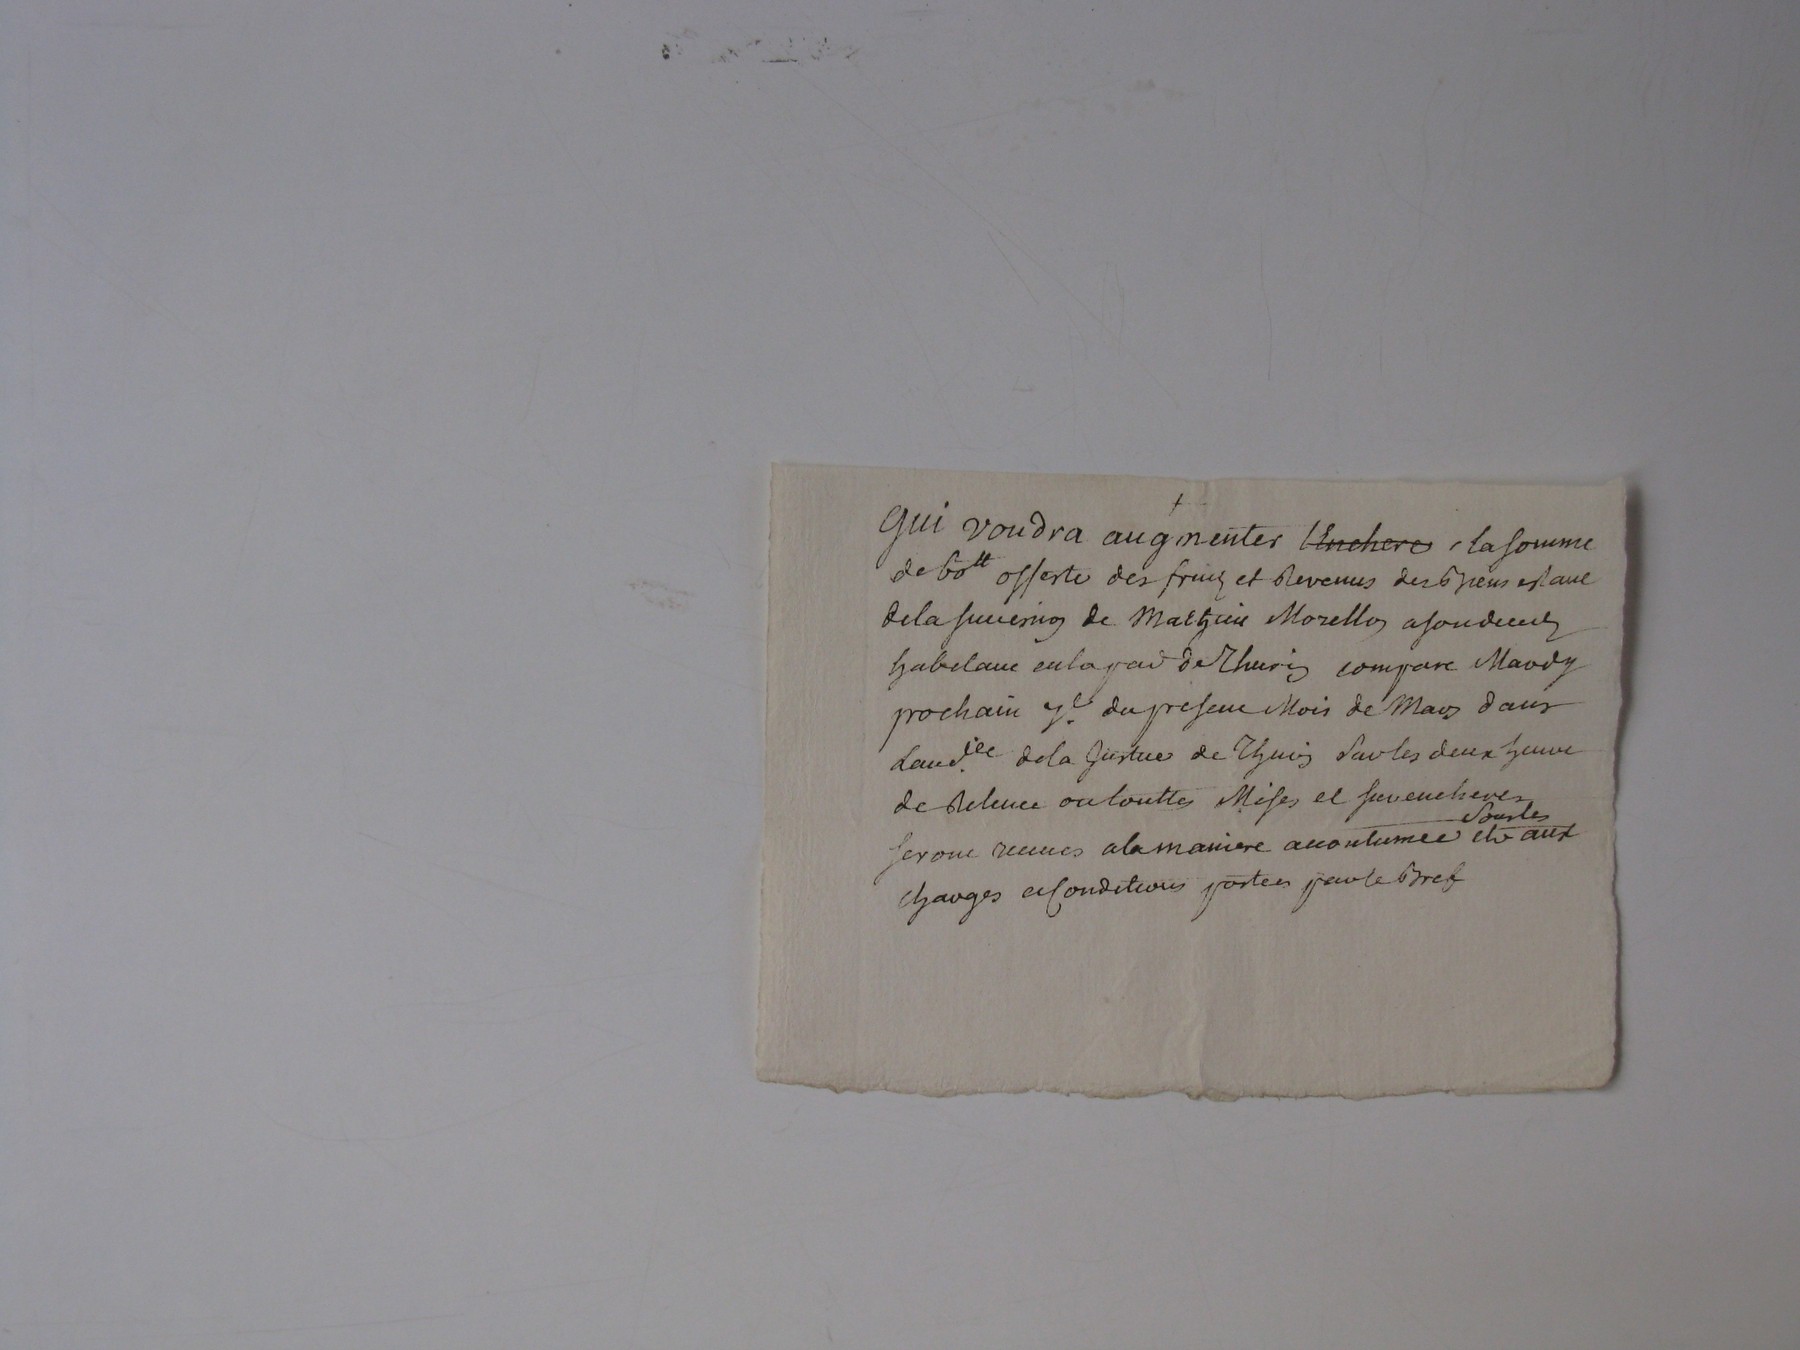 Qui voudra augmenter l'Enchere la somme
de 60 tt offerte des fruiz et Revenus des Biens estant
dela succession de Mathieu Morellon a son decedz
habitant en la par de Thurin compare Mardy
prochain 7e du present Mois de Mars dans
Laud.ce de la Justice de Thurin Sur les deux heure
de Relevee ou touttes Mises et surencheres
seront receues a la maniere accoutumee Sous les et aux
charges et Conditions portees par le Bref